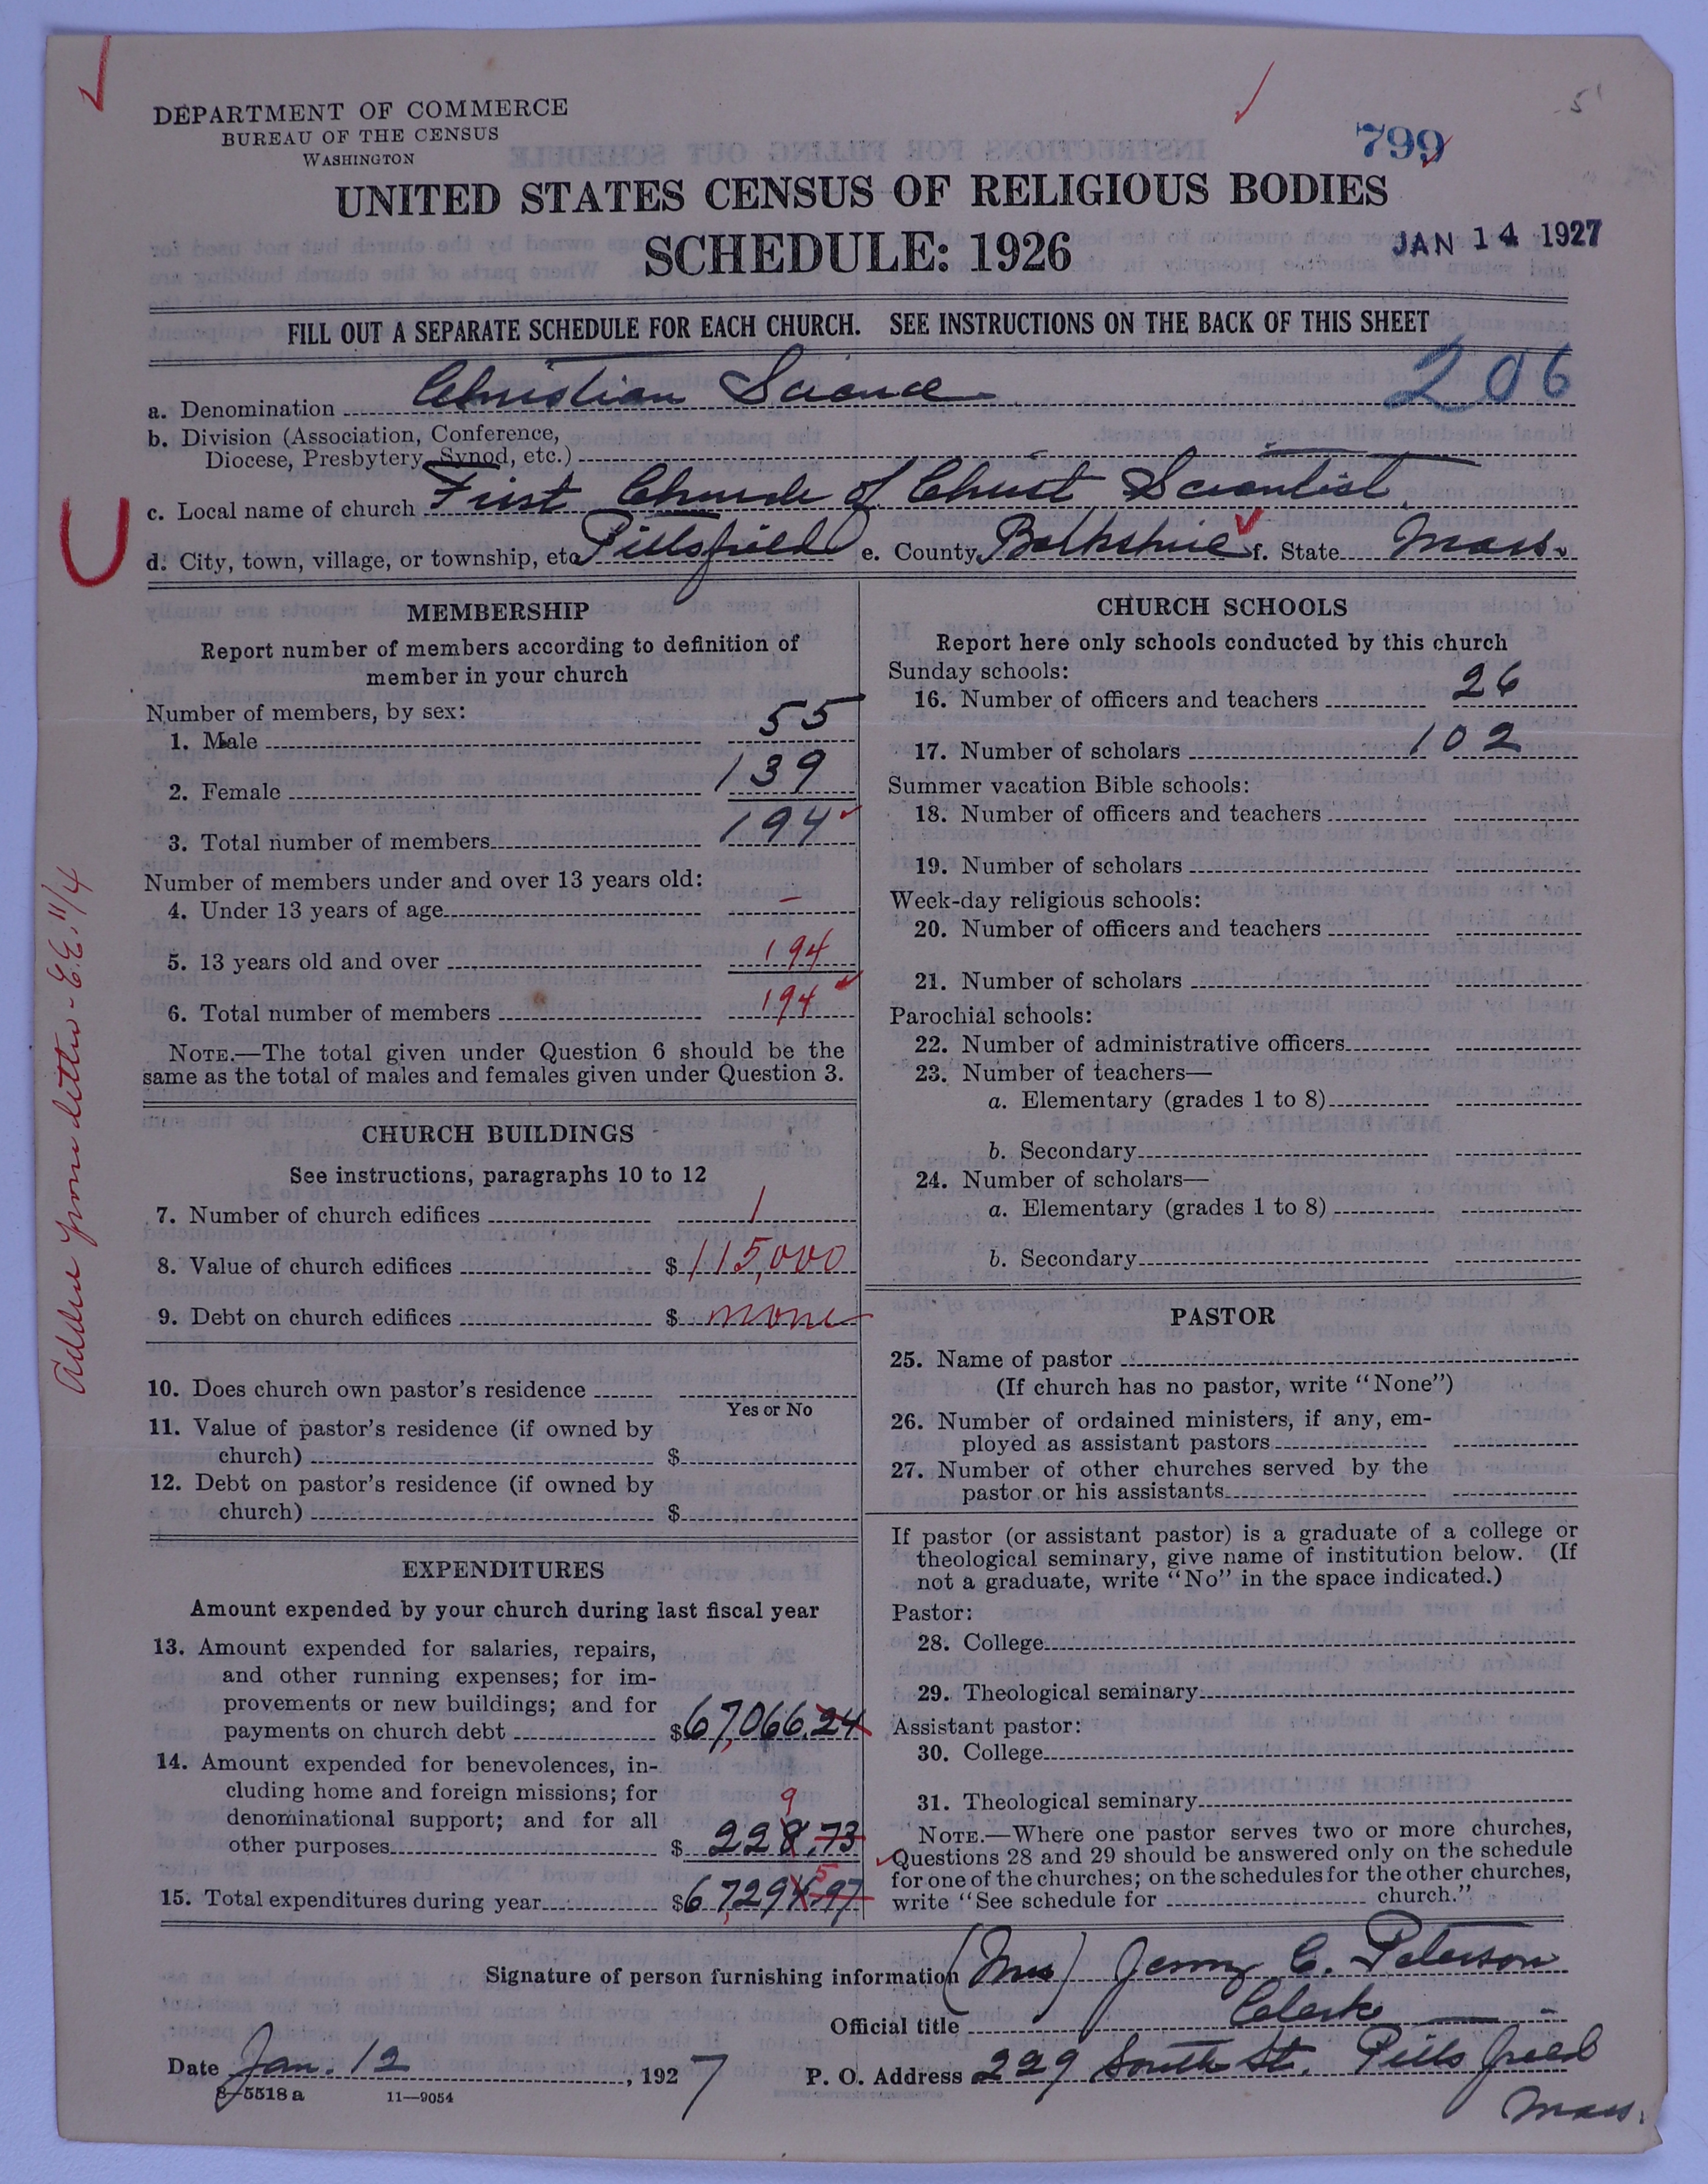 DEPARTMENT OF COMMERCE
BUREAU OF THE CENSUS
WASHINGTON
799
UNITED STATES CENSUS OF RELIGIOUS BODIES
SCHEDULE: 1926
JAN 14 1927
FILL OUT A SEPARATE SCHEDULE FOR EACH CHURCH. SEE INSTRUCTIONS ON THE BACK OF THIS SHEET
a. Denomination Christian Science 206
b. Division (Association, Conference,
Diocese, Presbytery, Synod, etc.)
c. Local name of church First Church of Christ Scientist
d. City, town, village, or township, etc Pittsfield e. County Berkshire f. State Mass.
MEMBERSHIP
Report number of members according to definition of
member in your church
Number of members, by sex:
1. Male 55
2. Female 139
3. Total number of members 194
Number of members under and over 13 years old:
4. Under 13 years of age –
5. 13 years old and over 194
6. Total number of members 194
NOTE.—The total given under Question 6 should be the
same as the total of males and females given under Question 3.
Added from letter - E.E. 11/4
CHURCH BUILDINGS
See instructions, paragraphs 10 to 12
7. Number of church edifices 1
8. Value of church edifices $ 115,000
9. Debt on church edifices $ none
10. Does church own pastor's residence
Yes or No
11. Value of pastor's residence (if owned by
church) $
12. Debt on pastor's residence (if owned by
church) $
EXPENDITURES
Amount expended by your church during last fiscal year
13. Amount expended for salaries, repairs,
and other running expenses; for im-
provements or new buildings; and for
payments on church debt $67,066.24
14. Amount expended for benevolences, in-
cluding home and foreign missions; for
9
denominational support; and for all
other purposes $ 228.73
5
15. Total expenditures during year $67,294.97
CHURCH SCHOOLS
Report here only schools conducted by this church
Sunday schools:
16. Number of officers and teachers 26
17. Number of scholars 102
Summer vacation Bible schools:
18. Number of officers and teachers
19. Number of scholars
Week-day religious schools:
20. Number of officers and teachers
21. Number of scholars
Parochial schools:
22. Number of administrative officers
23. Number of teachers—
a. Elementary (grades 1 to 8)
b. Secondary
24. Number of scholars—
a. Elementary (grades 1 to 8)
b. Secondary
PASTOR
25. Name of pastor
(If church has no pastor, write "None")
26. Number of ordained ministers, if any, em-
ployed as assistant pastors
27. Number of other churches served by the
pastor or his assistants
If pastor (or assistant pastor) is a graduate of a college or
theological seminary, give name of institution below. (If
not a graduate, write "No" in the space indicated.)
Pastor:
28. College
29. Theological seminary
Assistant pastor:
30. College
31. Theological seminary
NOTE.—Where one pastor serves two or more churches,
Questions 28 and 29 should be answered only on the schedule
for one of the churches; on the schedules for the other churches,
write "See schedule for church."
Signature of person furnishing information (Mrs) Jenny C. Peterson
Official title Clerk
Date Jan. 12, 1927 P. O. Address 229 South St. Pittsfield
Mass.
8-5518 a 11—9054